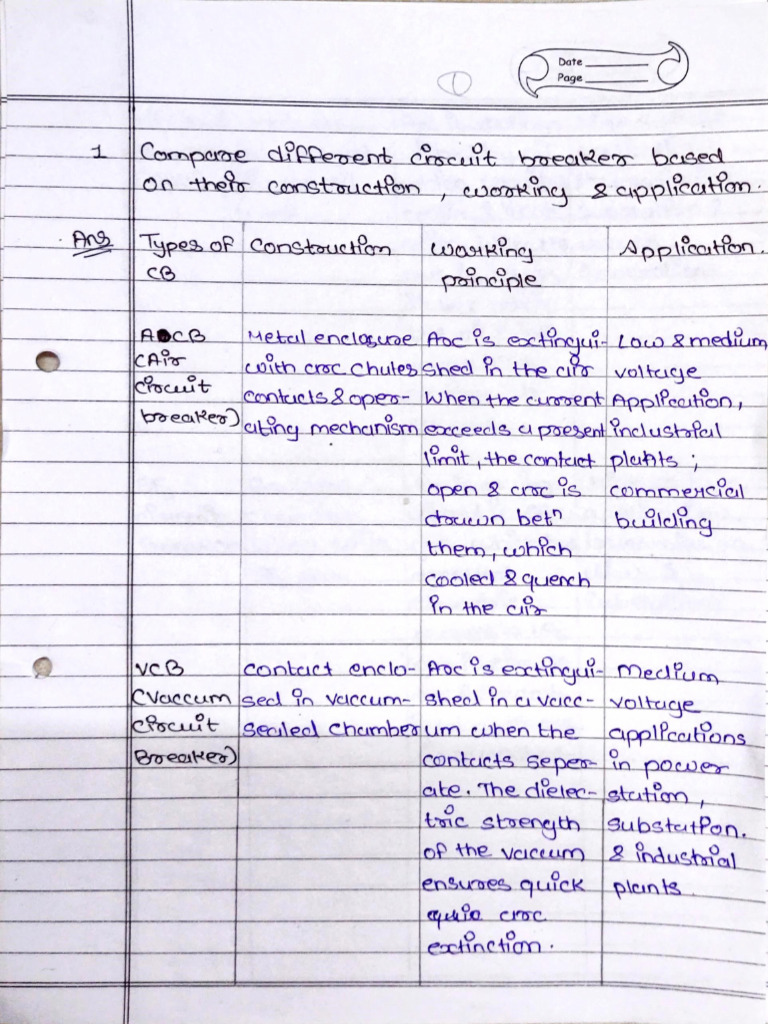 Date
Page
1
1 Compare different circuit breaker based
on their construction, working & application.
Ans
Types of
CB
Construction
Working
principle
Application.
ACB
(Air
circuit
breaker)
Metal enclosure
with arc chutes
contacts & oper-
ating mechanism
Arc is extingui-
shed in the air
When the current
exceeds a present
limit, the contact
open & arc is
drawn betn
them, which
cooled & quench
in the air
Low & medium
voltage
Application,
industrial
plants ;
commercial
building
VCB
(Vaccum
circuit
Breaker)
Contact enclo-
sed in vaccum-
sealed chamber
Arc is extingui-
shed in a vacc-
um when the
contacts seper-
ate. The dielec-
tric strength
of the vaccum
ensures quick
arc
extinction.
Medium
voltage
applications
in power
station,
substation.
& industrial
plants.